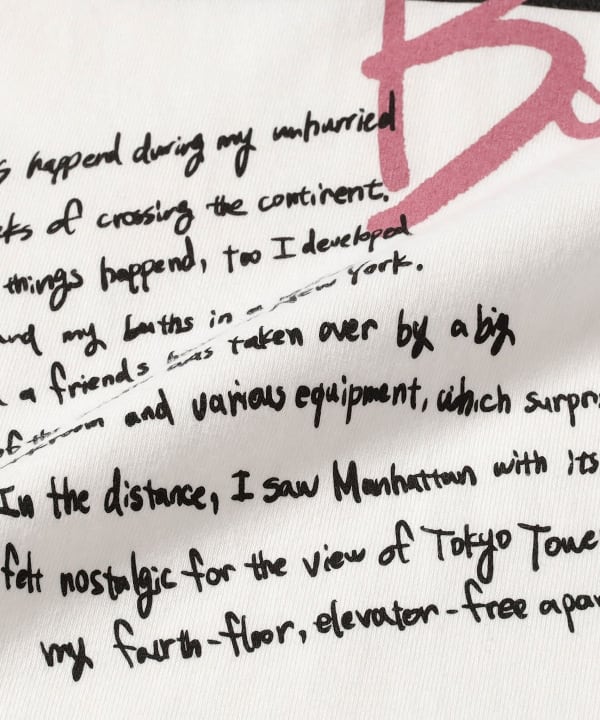 happend during my unhurried
of crossing the continent.
things happend, too I developed
my baths in a New York.
a friends was taken over by a big
and various equipment, which
In the distance, I saw Manhattan with its
felt nostalgic for the view of Tokyo
my fourth-floor, elevator-free